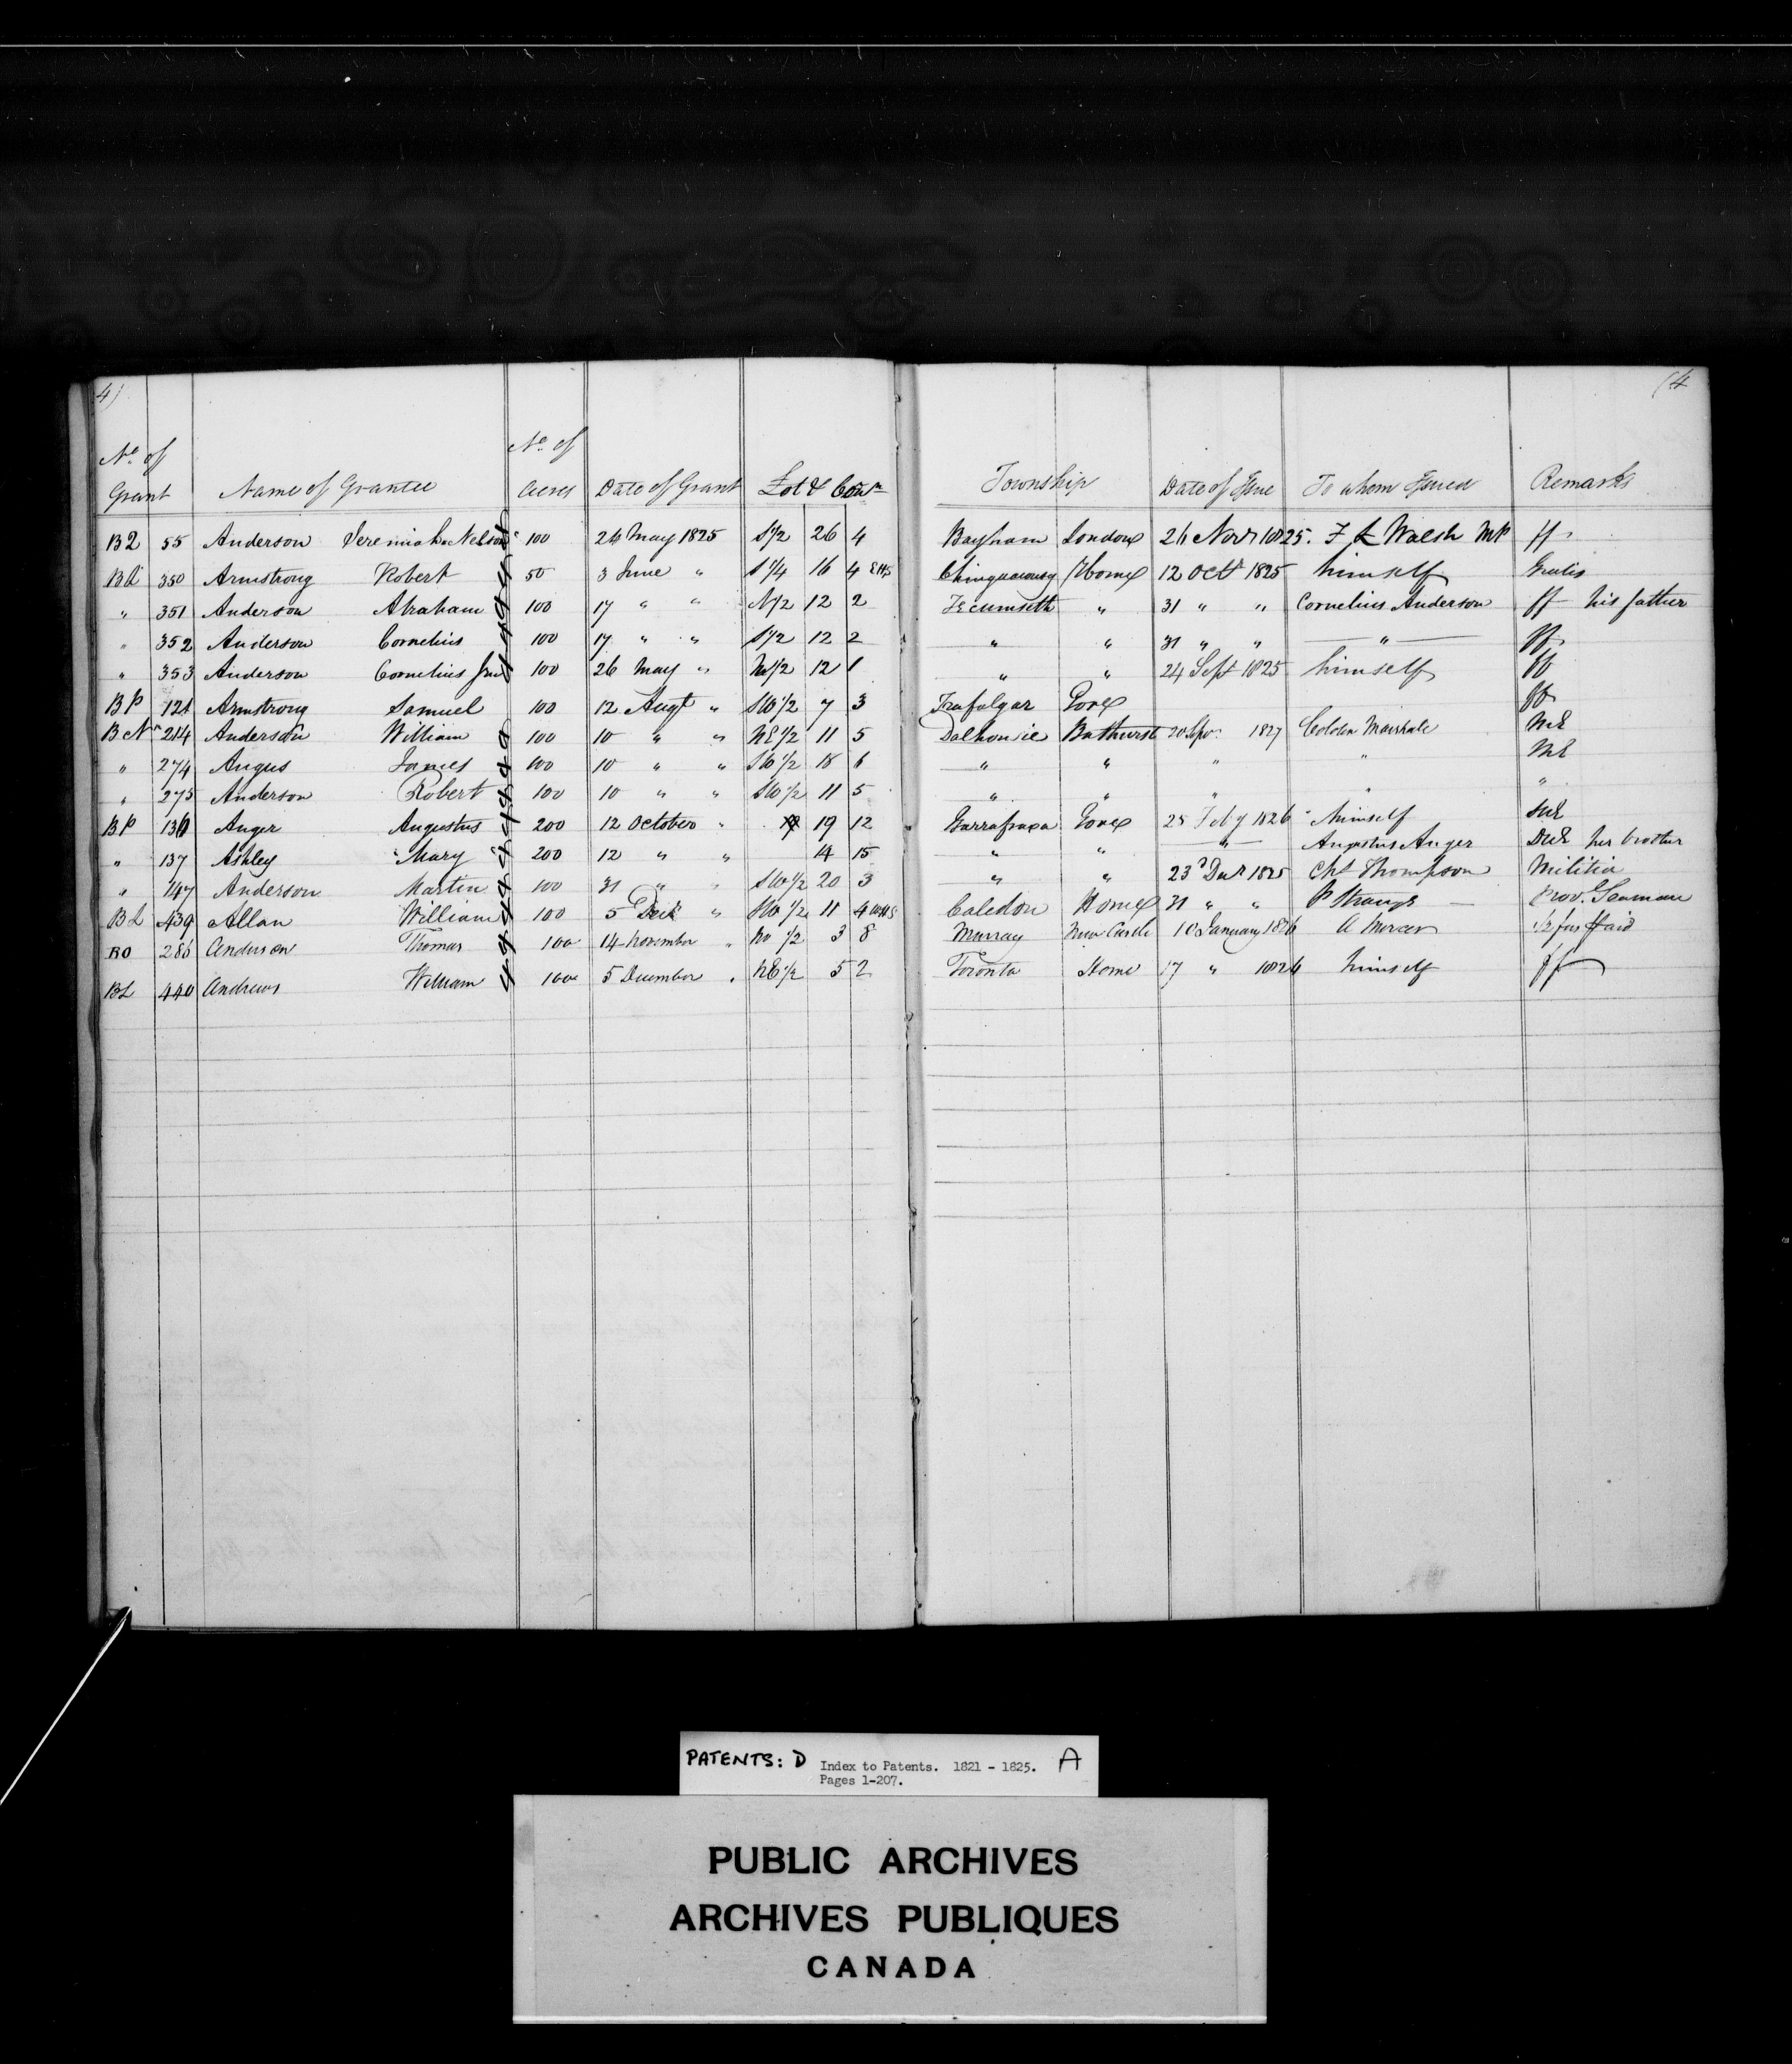 4) (4
No. of Grant Name of Grantee No. of Acres Date of Grant Lot & Con Township Date of Issue To whom Issued Remarks
B2 55 Anderson Jeremiah Nelson 100 26 May 1825 S 1/2 26 4 Bayham London 26 Novr 1825. F L Walsh MP ff
350 Armstrong Robert 50 3 June " S 1/4 16 4 EHS Chinguacousy Home 12 Octr 1825 himself Gratis
" 351 Anderson Abraham 100 17 " " N 1/2 12 2 Tecumseth " 31 " " Cornelius Anderson ff his father
" 352 Anderson Cornelius 100 17 " " S 1/2 12 2 " " 31 " " " ff
" 353 Anderson Cornelius Junr 100 26 May " 12 1 " " 24 Sept 1825 himself ff
BP 121 Armstrong Samuel 100 12 Augt " SW 1/2 7 3 Trafalgar Gore ff
BN 214 Anderson William 100 10 " " NE 1/2 11 5 Dalhousie Bathurst 20 1827 ME
" 274 Angus James 100 10 " " SW 1/2 18 6 " " " " ME
" 275 Anderson Robert 100 10 " " SW 1/2 11 5 " " " " "
BP 136 Anger Augustus 200 12 October " 19 12 Garrafraxa Gore 28 Feby 1826 himself
" 137 Ashley Mary 200 12 " " 14 15 " " " Augustus Anger her brother
" 147 Anderson Martin 100 31 " " SW 1/2 20 3 " " 23d Decr 1825 Thompson Militia
BL 439 Allan William 100 5 Decr " SW 1/2 11 4 WHS Caledon Home 31 " " P Strange Prov. Seaman
BO 286 Anderson Thomas 100 14 November " 1/2 3 8 Murray New Castle 10 January 1826 A Mercer 1/2 fees paid
BL 440 Andrews William 100 5 December " NE 1/2 5 2 Toronto Home 17 " 1826 himself ff
PATENTS: D Index to Patents. 1821 - 1825. A
Pages 1-207.
PUBLIC ARCHIVES
ARCHIVES PUBLIQUES
CANADA